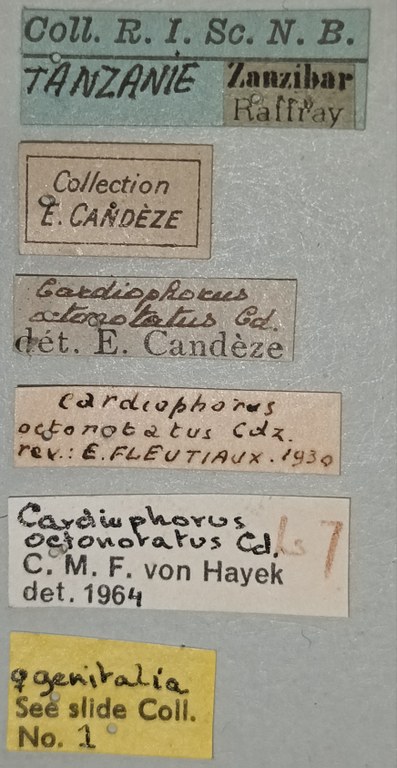 Coll. R. I. Sc. N. B.
TANZANIE
Zanzibar
Raffray
Collection
E. CANDÈZE
Cardiophorus
octonotatus Cd.
dét. E. Candèze
Cardiophorus
octonotatus Cdz.
rev.: E. FLEUTIAUX. 1930
Cardiophorus
octonotatus Cd.
C. M. F. von Hayek
det. 1964
♀ genitalia
See slide Coll.
No. 1